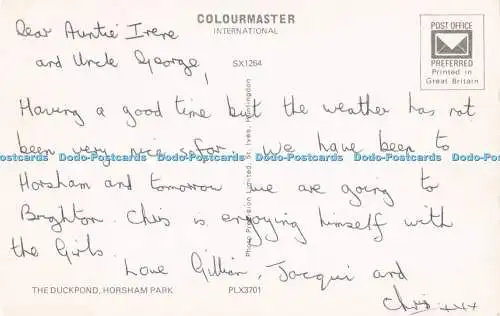 COLOURMASTER
INTERNATIONAL
POST OFFICE
PREFERRED
Printed in
Great Britain
SX1264
Dear Auntie Irene
and Uncle George,
Having a good time but the weather has not
been very nice sofar. We have been to
Dodo-Postcards Dodo-Postcards Dodo-Postcards Dodo-Postcards Dodo-Postcards Dodo-Postcards
Horsham and tomorrow we are going to
Brighton. Chris is enjoying himself with
the Girls.
Love Gillian, Jacqui and
Chris xxx
Photo Precision Limited, St. Ives, Huntingdon
THE DUCKPOND, HORSHAM PARK
PLX3701